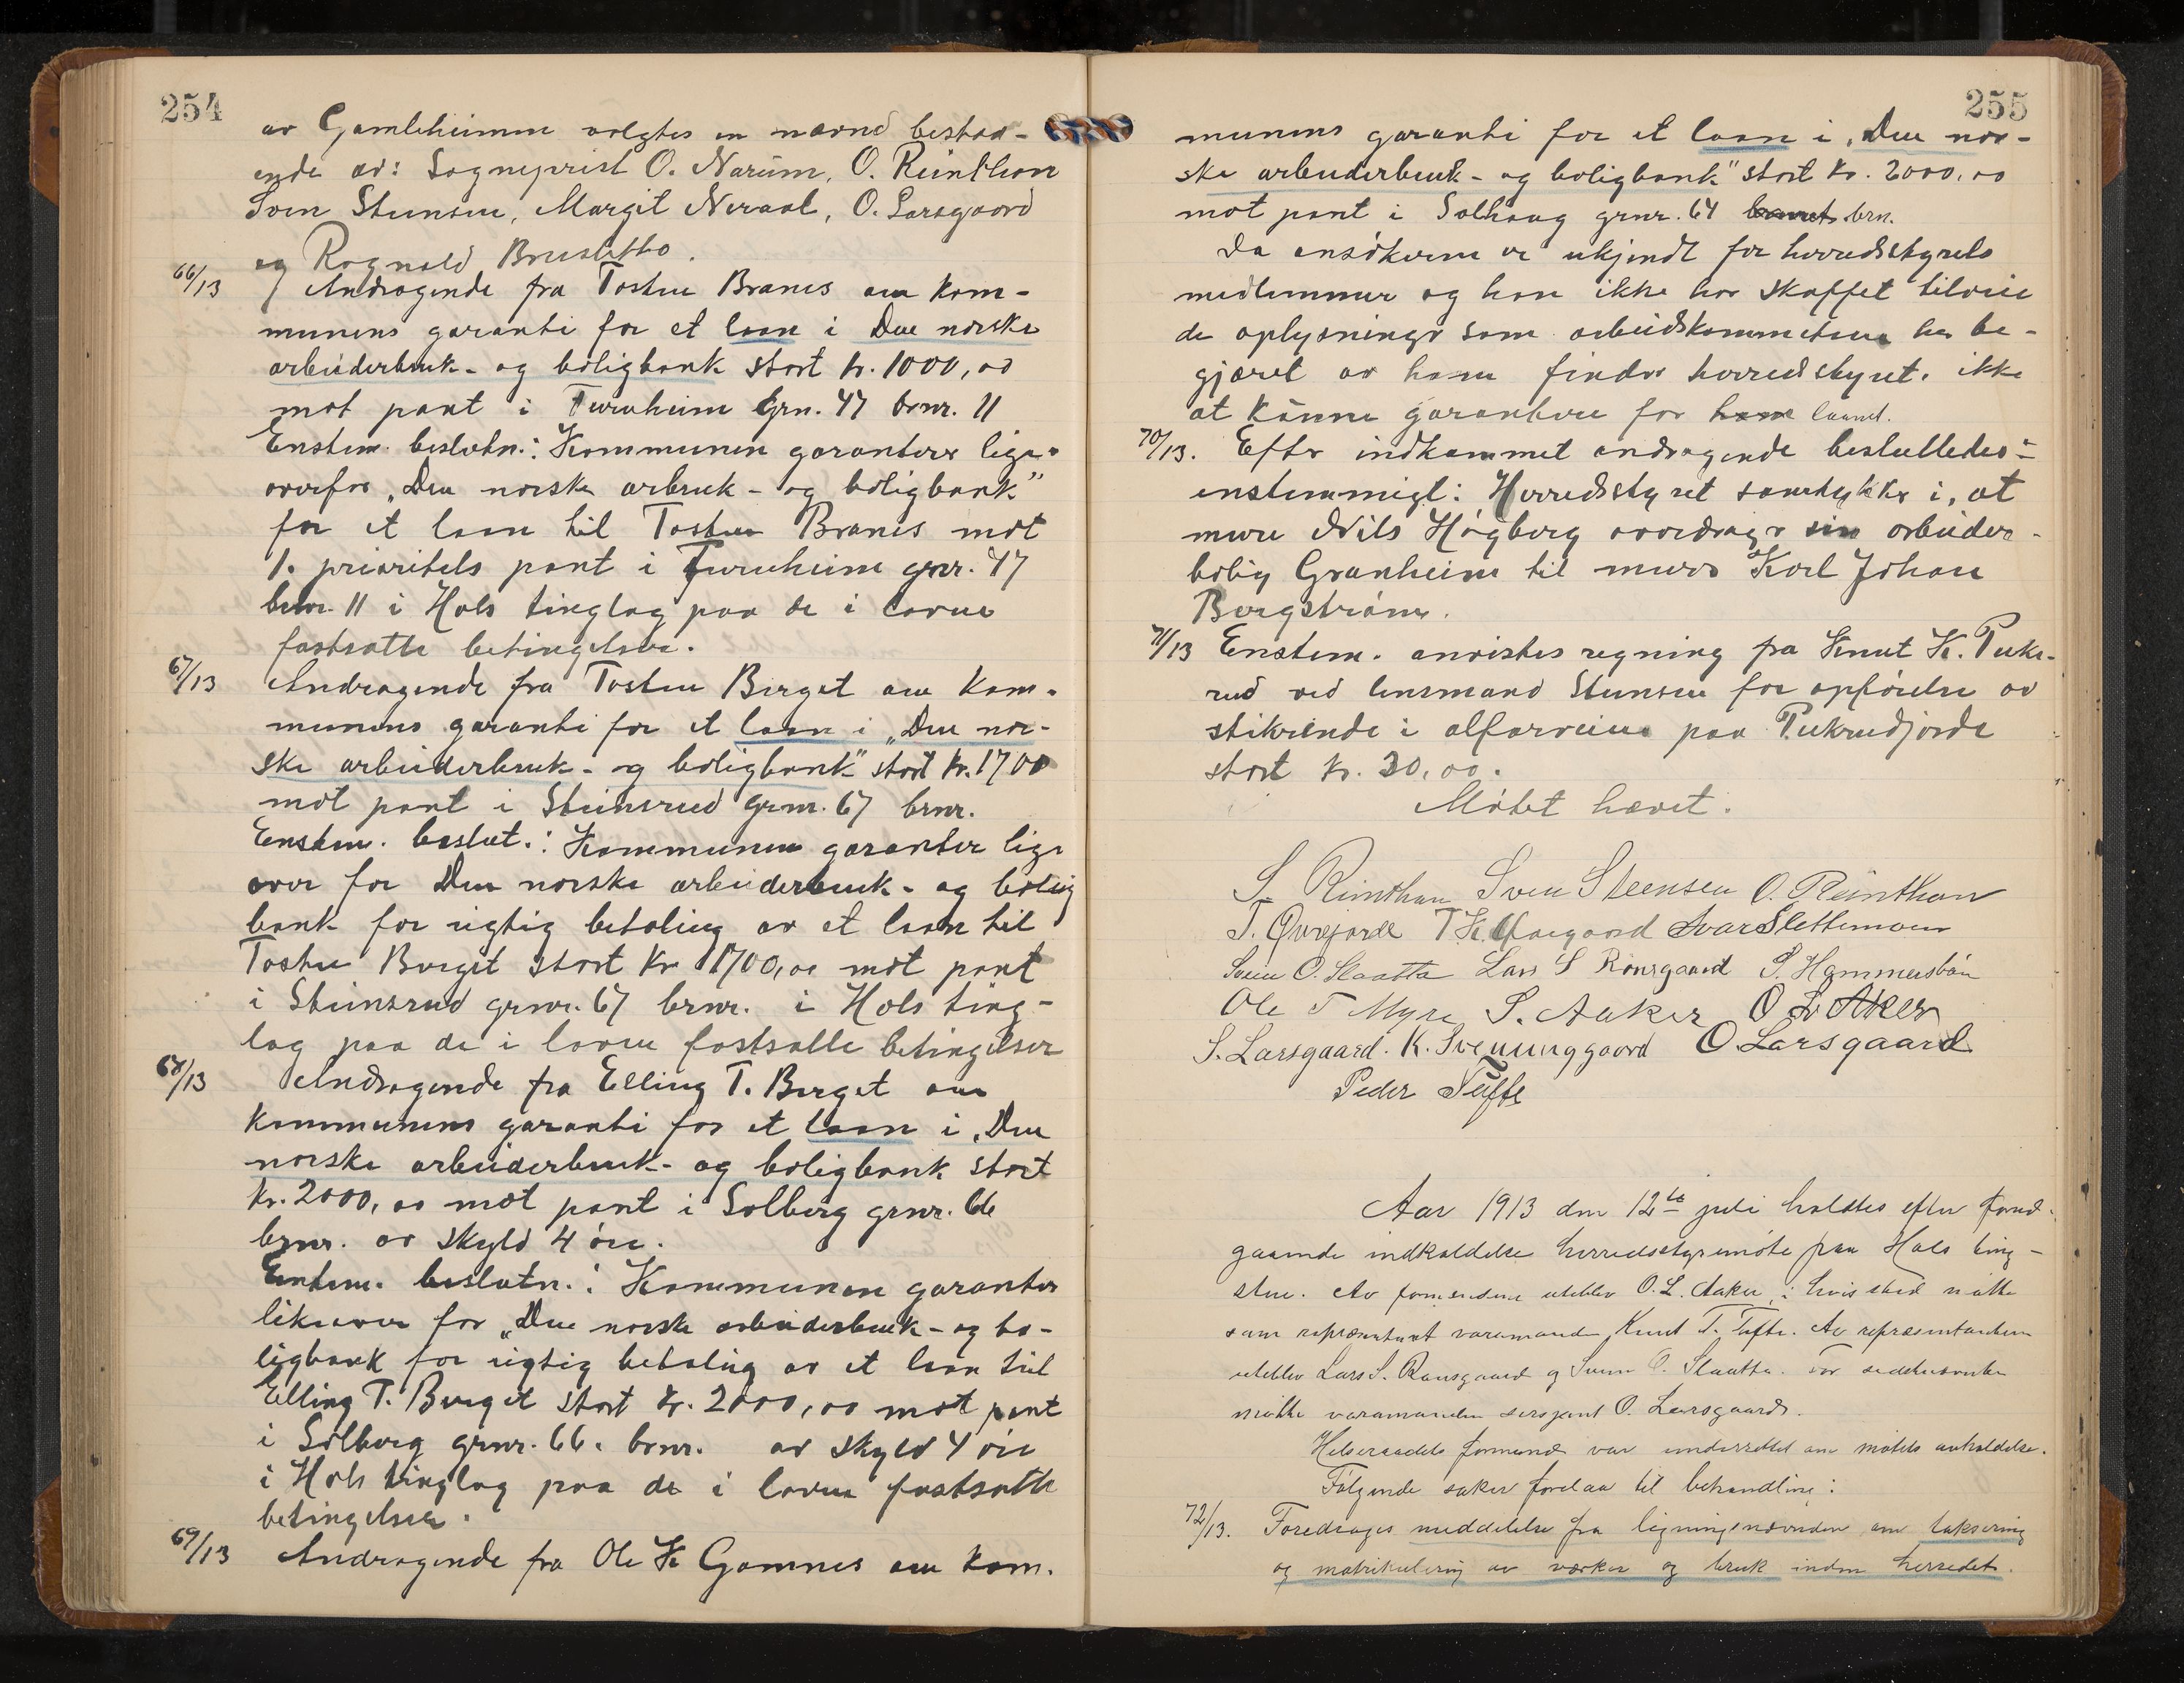 254
av Gamleheimen valgtes en nævnd bestaa-
ende av: Sogneprest O. Narum, O. Reinthon
Sven Steensen, Margit Neraal, O. Larsgaard
og Ragnald Brusletto.
66/13 Andragende fra Tosten Branes om kom-
munens garanti for et laan i Den norske
arbeiderbruk- og boligbank stort kr. 1000,00
mot pant i Furuheim Grn. 47 brnr. 11
Enstem. beslutn.: Kommunen garanterer lige-
overfor „Den norske arbruk- og boligbank"
for et laan til Tosten Branes mot
1. prioritets pant i Furuheim grnr. 47
brnr. 11 i Hols tinglag paa de i loven
fastsatte betingelser.
67/13 Andragende fra Tosten Berget om kom-
munens garanti for et laan i „Den nor-
ske arbeiderbruk- og boligbank" stort kr. 1700
mot pant i Steinsrud grnr. 67 brnr.
Enstem. beslut.: Kommunen garanter lige
over for Den norske arbeiderbruk- og bolig
bank for rigtig betaling av et laan til
Tosten Berget stort kr 1700,00 mot pant
i Steinsrud grnr. 67 brnr. i Hols ting-
lag paa de i loven fastsatte betingelser
68/13 Andragende fra Elling T. Berget om
kommunens garanti for et laan i „Den
norske arbeiderbruk- og boligbank stort
kr. 2000,00 mot pant i Solberg grnr. 66
brnr. av skyld 4 øre.
Enstem. beslutn.: Kommunen garanter
likeover for „Den norske arbeiderbruk- og bo-
ligbank for rigtig betaling av et laan til
Elling T. Berget stort kr. 2000,00 mot pant
i Solberg grnr. 66. brnr. av skyld 4 øre
i Hols tinglag paa de i loven fastsatte
betingelser.
69/13 Andragende fra Ole K Gamnes om kom-
255
munens garanti for et laan i „Den nor-
ske arbeiderbruk- og boligbank" stort kr. 2000,00
mot pant i Solhaug grnr. 64 brn.
Da ansökeren er ukjendt for herredsstyrets
medlemmer og han ikke har skaffet tilveie
de oplysninger som arbeidskommiteen har be-
gjæret av ham finder herredsstyret ikke
at kunne garantere for ham laanet.
70/13. Efter indkommet andragende besluttedes
enstemmigt: Herredsstyret samtykker i, at
murer Nils Högberg overdrager sin arbeider-
bolig Granheim til murer Karl Johan
Bergström.
71/13 Enstem. anvistes regning fra Knut K. Puke-
rud ved lensmand Steensen for opförelse av
stikrende i alfarveien paa Pukerudjorde
stort kr. 30,00.
Mötet hævet.
S. Reinthon Sven Steensen O. Reinthon
T. Öyrejorde T K Moegaard Ivar Slettemoen
Svein O. Slaatta Lars S Ronsgaard S. Hammersbøn
Ole T Myre S. Aaker O L Aker
S. Larsgaard. K. Sveinunggaard O. Larsgaard
Peder Tufte
Aar 1913 den 12te juli holdtes efter forud-
gaaende indkaldelse herredsstyremöte paa Hols ting-
stue. Av formændene uteblev O. L. Aaker, i hvis sted mötte
som repræsentant varamanden Knut T. Tufte. Av repræsentanterne
uteblev Lars S. Ronsgaard og Svein O. Slaatta. For sidstnævnte
mötte varamanden sersjant O. Larsgaard.
Helseraadets formand var underrettet om mötets avholdelse.
Fölgende saker forelaa til behandling:
72/13. Foredrages meddelelse fra ligningsnævnden om taksering
og matrikulering av verker og bruk inden herredet.